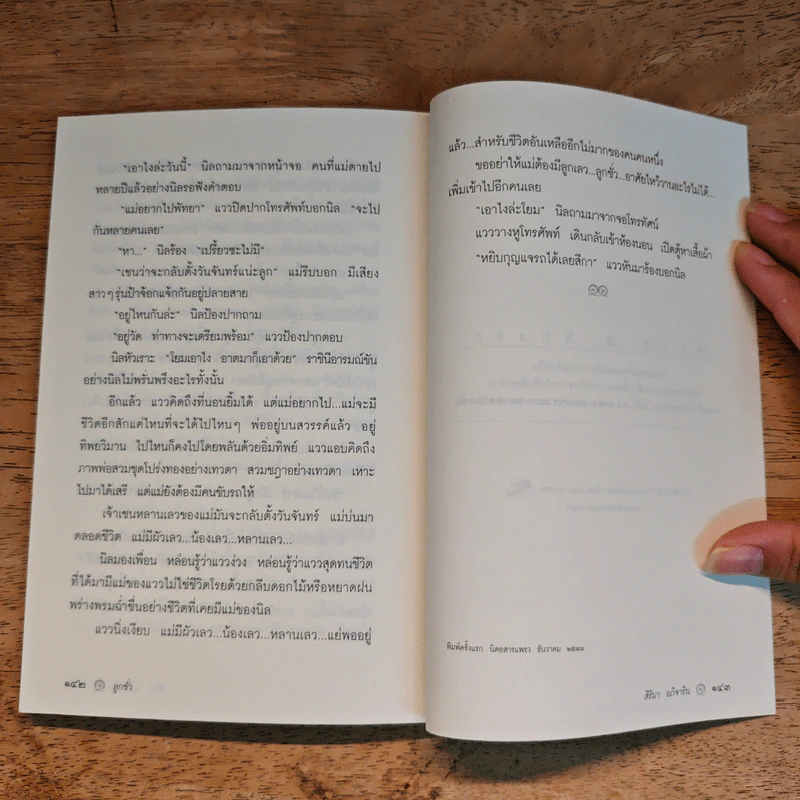 "เอาไงล่ะวันนี้" นิลถามมาจากหน้าจอ คนที่แม่ตายไป
หลายปีแล้วอย่างนิลรอฟังคำตอบ
"แม่อยากไปพัทยา" แววปิดปากโทรศัพท์บอกนิล "จะไป
กันหลายคนเลย"
"หา..." นิลร้อง "เปรี้ยวซะไม่มี"
"เชนว่าจะกลับตั้งวันจันทร์แน่ะลูก" แม่รีบบอก มีเสียง
สาวๆรุ่นป้าจ้อกแจ้กกันอยู่ปลายสาย
"อยู่ไหนกันล่ะ" นิลป้องปากถาม
"อยู่วัด ท่าทางจะเตรียมพร้อม" แววป้องปากตอบ
นิลหัวเราะ "โยมเอาไง อาตมาก็เอาด้วย" ราชินีอารมณ์ขัน
อย่างนิลไม่พรั่นพรึงอะไรทั้งนั้น
อีกแล้ว แววคิดถึงที่นอนยิ้มได้ แต่แม่อยากไป...แม่จะมี
ชีวิตอีกสักแค่ไหนที่จะได้ไปไหนๆ พ่ออยู่บนสวรรค์แล้ว อยู่
ทิพยวิมาน ไปไหนก็คงไปโดยพลันด้วยอิ่มทิพย์ แววแอบคิดถึง
ภาพพ่อสวมชุดโปร่งทองอย่างเทวดา สวมชฎาอย่างเทวดา เหาะ
ไปมาได้เสรี แต่แม่ยังต้องมีคนขับรถให้
เจ้าเชนหลานเลวของแม่มันจะกลับตั้งวันจันทร์ แม่บ่นมา
ตลอดชีวิต แม่มีผัวเลว...น้องเลว...หลานเลว...
นิลมองเพื่อน หล่อนรู้ว่าแววง่วง หล่อนรู้ว่าแววสุดทนชีวิต
ที่ได้มามีแม่ของแววไม่ใช่ชีวิตโรยด้วยกลีบดอกไม้หรือหยาดฝน
พร่างพรมฉ่ำชื่นอย่างชีวิตที่เคยมีแม่ของนิล
แววนิ่งเงียบ แม่มีผัวเลว...น้องเลว...หลานเลว...แย่พออยู่
๑๔๒ ลูกชั่ว
แล้ว...สำหรับชีวิตอันเหลืออีกไม่มากของคนคนหนึ่ง
ขออย่าให้แม่ต้องมีลูกเลว...ลูกชั่ว...อาศัยไหว้วานอะไรไม่ได้...
เพิ่มเข้าไปอีกคนเลย
"เอาไงล่ะโยม" นิลถามมาจากจอโทรทัศน์
แวววางหูโทรศัพท์ เดินกลับเข้าห้องนอน เปิดตู้หาเสื้อผ้า
"หยิบกุญแจรถได้เลยสีกา" แววหันมาร้องบอกนิล
พิมพ์ครั้งแรก นิตยสารแพรว ธันวาคม
สิริมา อภิจาริน ๑๔๓